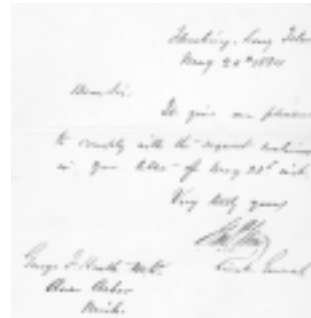 Flushing, Long Island
May 26th 1894
Dear Sir.
It gives me pleasure
to comply with the request contained
in your letter of May 23d inst.
Very truly yours
George F. Heath M.D.
Ann Arbor
Mich.